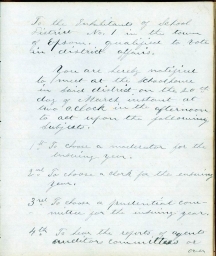 To the Inhabitants of School
District No. 1 in the town
of Epsom, qualified to vote
in district affairs.
You are hereby notified
to meet at the schoolhouse
in said district on the 20th
day of March instant at
two oclock in the afternoon
to act upon the following
subjects.
1st To choose a moderator for the
ensuing year.
2nd To choose a clerk for the ensuing
year.
3rd To choose a prudential com-
mittee for the ensuing year.
4th To hear the reports of agents
auditors committees or
over